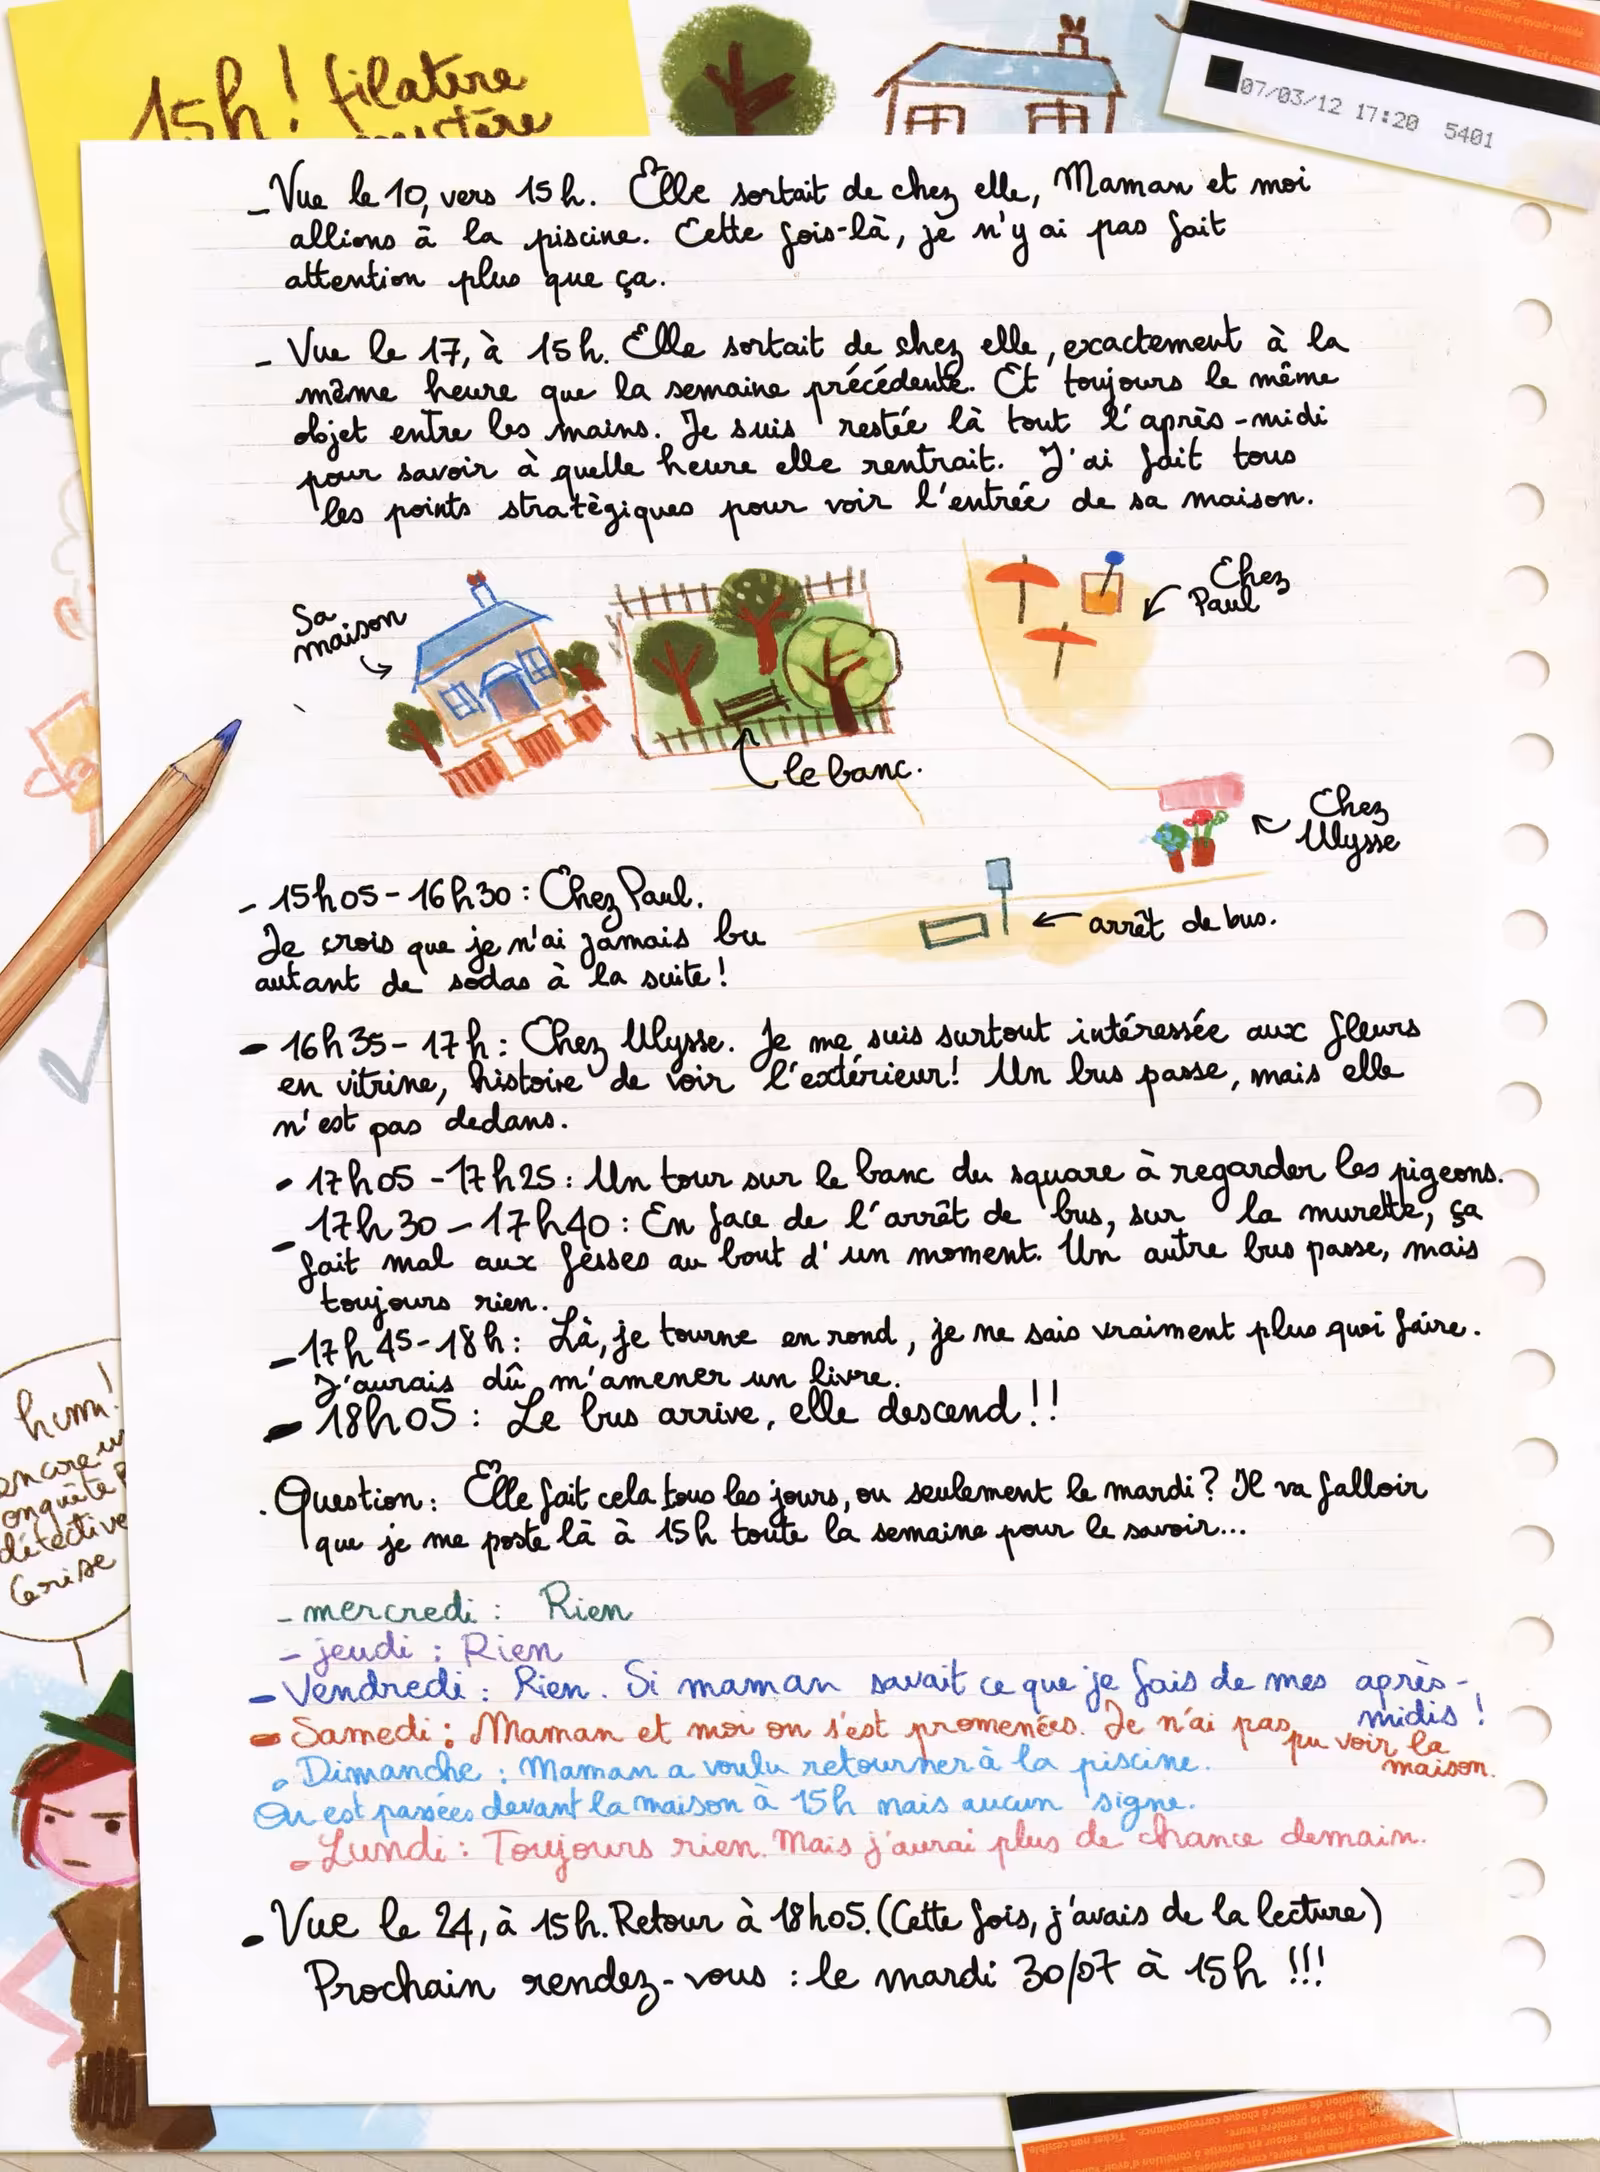 15h! filature
mystère
07/03/12 17:20 5401
- Vue le 10, vers 15h. Elle sortait de chez elle, Maman et moi
allions à la piscine. Cette fois-là, je n'y ai pas fait
attention plus que ça.
- Vue le 17, à 15h. Elle sortait de chez elle, exactement à la
même heure que la semaine précédente. Et toujours le même
objet entre les mains. Je suis restée là tout l'après-midi
pour savoir à quelle heure elle rentrait. J'ai fait tous
les points stratègiques pour voir l'entrée de sa maison.
Sa
maison
Chez
Paul
le banc.
Chez
Ulysse
arrêt de bus.
- 15h05-16h30 : Chez Paul.
Je crois que je n'ai jamais bu
autant de sodas à la suite!
- 16h35-17h : Chez Ulysse. Je me suis surtout intéressée aux fleurs
en vitrine, histoire de voir l'extérieur! Un bus passe, mais elle
n'est pas dedans.
- 17h05-17h25 : Un tour sur le banc du square à regarder les pigeons.
- 17h30-17h40 : En face de l'arrêt de bus, sur la murette, ça
fait mal aux fesses au bout d'un moment. Un autre bus passe, mais
toujours rien.
- 17h45-18h : Là, je tourne en rond, je ne sais vraiment plus quoi faire.
J'aurais dû m'amener un livre.
- 18h05 : Le bus arrive, elle descend!!
. Question : Elle fait cela tous les jours, ou seulement le mardi? Il va falloir
que je me poste là à 15h toute la semaine pour le savoir...
- mercredi : Rien
- jeudi : Rien
- Vendredi : Rien. Si maman savait ce que je fais de mes après-
midis!
- Samedi : Maman et moi on s'est promenées. Je n'ai pas pu voir la
maison.
- Dimanche : Maman a voulu retourner à la piscine.
On est passées devant la maison à 15h mais aucun signe.
- Lundi : Toujours rien. Mais j'aurai plus de chance demain.
- Vue le 24, à 15h. Retour à 18h05. (Cette fois, j'avais de la lecture)
Prochain rendez-vous : le mardi 30/07 à 15h !!!
humm!
encore un
enquête
détective
Cerise